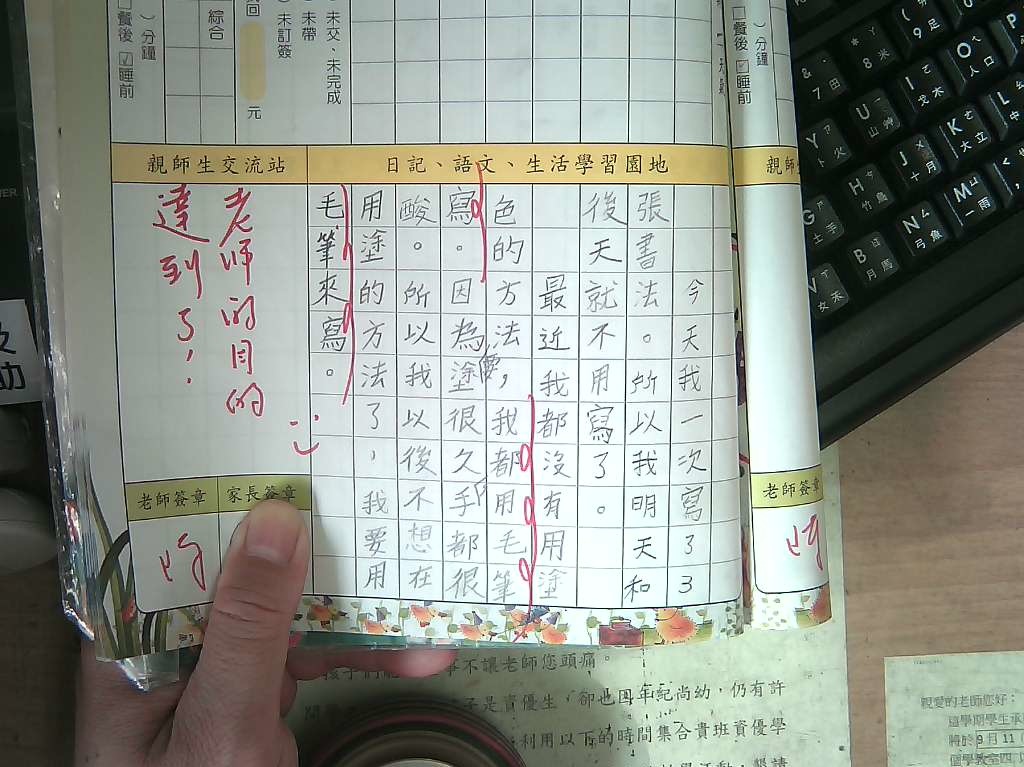 餐後 ☑睡前
）分鐘
綜合
元
未訂簽
未帶
未交、未完成
日記、語文、生活學習園地
今天我一次寫了3
張書法。所以我明天和
後天就不用寫了。
最近我都沒有用塗
色的方法，我都用毛筆
寫。因為塗很久手都很
酸。所以我以後不想在
用塗的方法了，我要用
毛筆來寫。
親師生交流站
老師的目的
達到了，
老師簽章
家長簽章
餐後 ☑睡前
）分鐘
親師
老師簽章
事不讓老師您頭痛。
子是資優生，卻也因年紀尚幼，仍有許
利用以下的時間集合貴班資優學
親愛的老師您好：
這學期學生承
將於9月11
個學教室四
助
&
7 田
*
8 米
(
9 足
Y 卜
U 山
I 戈 木
O 人 口
G 土
H 竹 鳥
J 十 月
K 大 立
L 中
N 女 禾
B 月 馬
N 弓 魚
M 一 雨